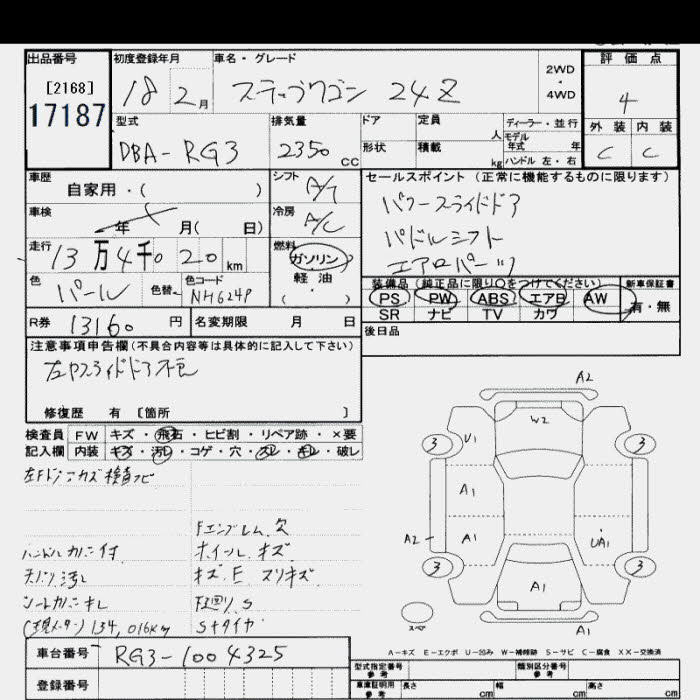 出品番号 初度登録年月 車名・グレード 評価点
[2168]
17187
18 2月 ステップワゴン 24Z 2WD・4WD 4
外装 内装
C C
型式 排気量 ドア 定員 人 ディーラー・並行
DBA-RG3 2350cc 形状 積載 kg モデル年式 年
ハンドル 左・右
車歴 自家用・( ) シフト A/T
セールスポイント(正常に機能するものに限ります)
パワースライドドア
パドルシフト
エアロパーツ
車検 年 月( 日) 冷房 A/C
走行 13万4千020km 燃料 ガソリン 軽油 ( )
色 パール 色替 色コード NH624P
装備品(純正品に限り○をつけてください) 新車保証書
PS PW ABS エアB AW 有・無
SR ナビ TV カワ
R券 13160円 名変期限 月 日
後日品
注意事項申告欄(不具合内容等は具体的に記入して下さい)
修復歴 有 [箇所 ]
検査員 FW キズ・飛石・ヒビ割・リペア跡・×要
記入欄 内装 キズ・汚レ・コゲ・穴・スレ・キレ・破レ
Fエンブレム欠
ハンドルカバー付 ホイールキズ
天バリ汚レ キズ.E スリキズ
シートカバーキレ 下廻り.S
(現メーター)134,016km Sタイヤ
A2
W2
3 U1 3
A1
A2 A1 UA1
3 3
A1
スペア
A1
A-キズ E-エクボ U-凹み W-補修跡 S-サビ C-腐食 XX-交換済
車台番号 RG3-1004325
登録番号
型式指定番号 参考 類別区分番号 参考
車庫証明用 参考 長さ cm 幅 cm 高さ cm